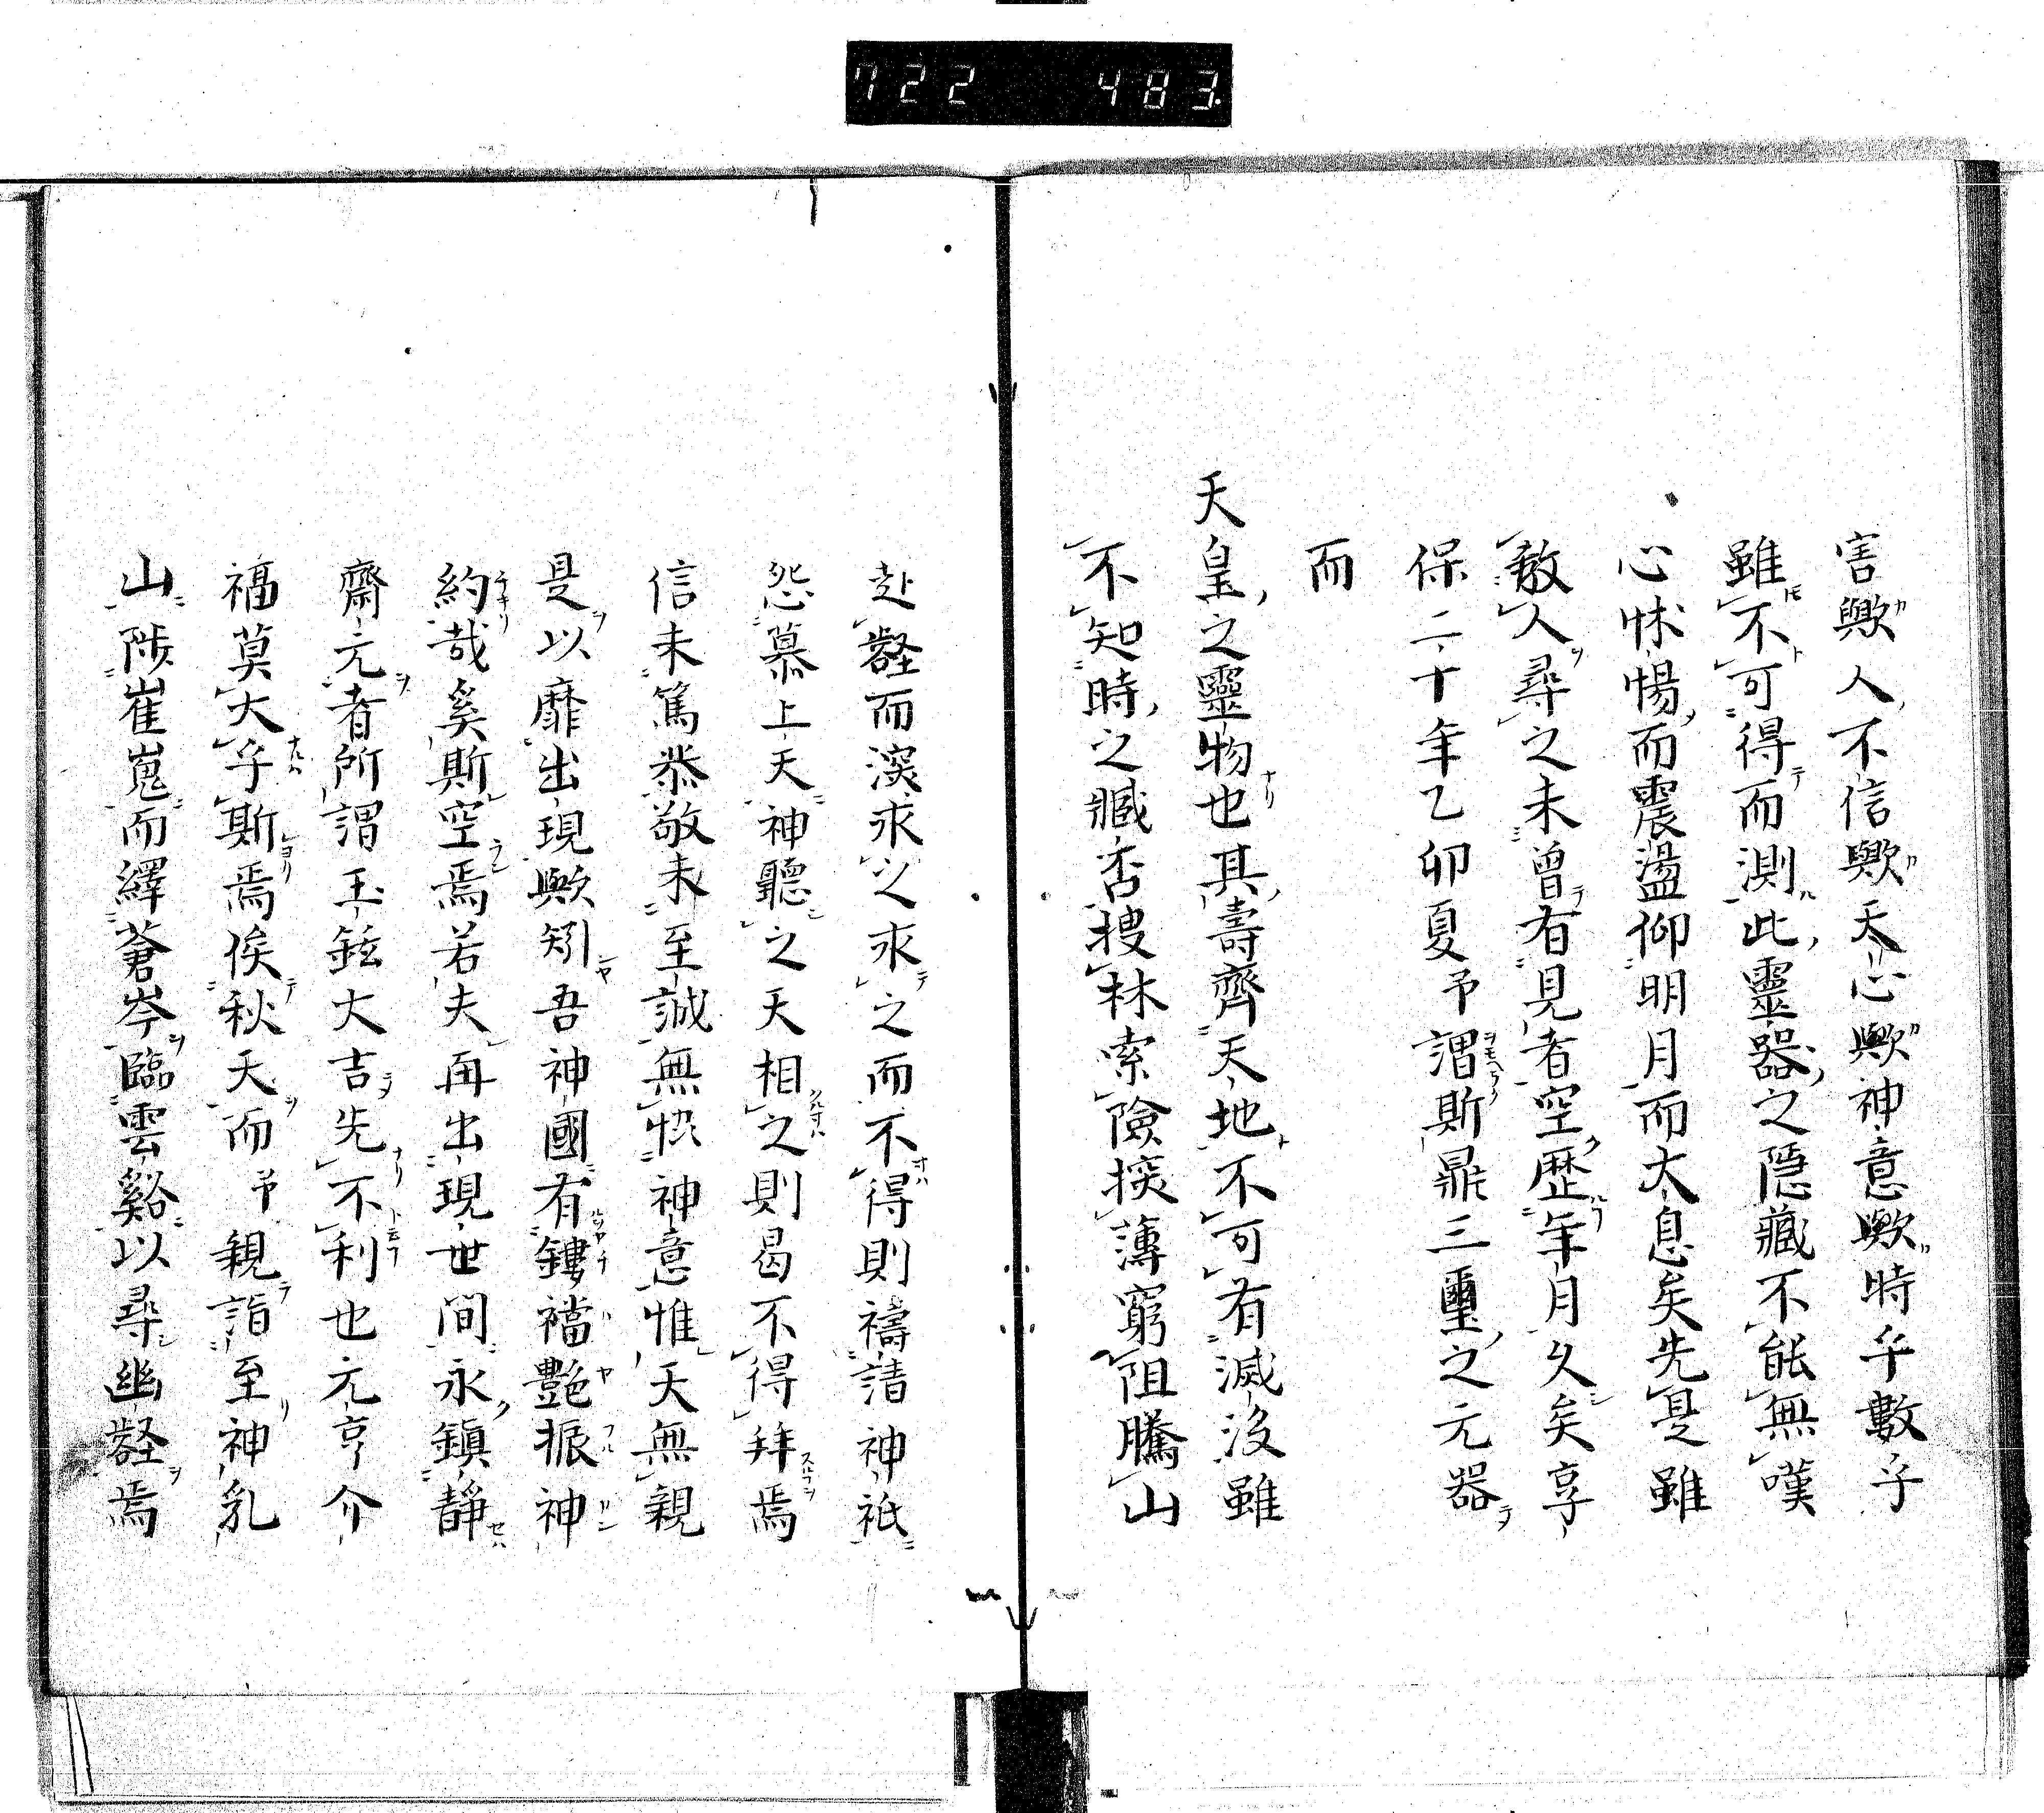 722 483
害歟人不信歟天心歟神意歟時乎數乎
雖不可得而測此靈器之隱藏不能無嘆
心怵惕而震盪仰明月而大息矣先是雖
敎人尋之未曾有見者空歷年月久矣享
保二十年乙卯夏予謂斯鼎三璽之元器
而
天皇之靈物也其壽齊天地不可有滅沒雖
不知時之臧否搜林索險探薄窮阻騰山
赴壑而深求之求之而不得則禱請神祇
怨慕上天神聽之天相之則曷不得拜焉
信未篤恭敬未至誠無恢神意惟天無親
是以靡出現歟矧吾神國有鏤襠艷振神
約哉奚斯空焉若夫再出現世間永鎮靜
齋元者所謂玉鉉大吉先不利也元亨介
福莫大乎斯焉俟秋天而予親詣至神乳
山陟崔嵬而繹蒼岑臨雲谿以尋幽壑焉